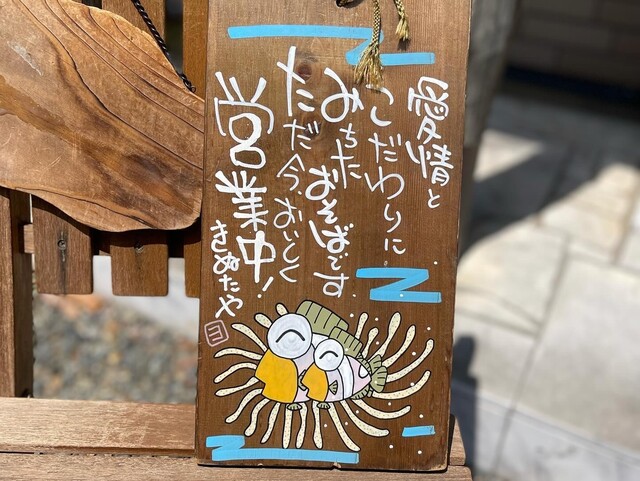 愛情と
こだわりに
みちた おそばです
ただ今、おいしく
営業中!
きぬたや